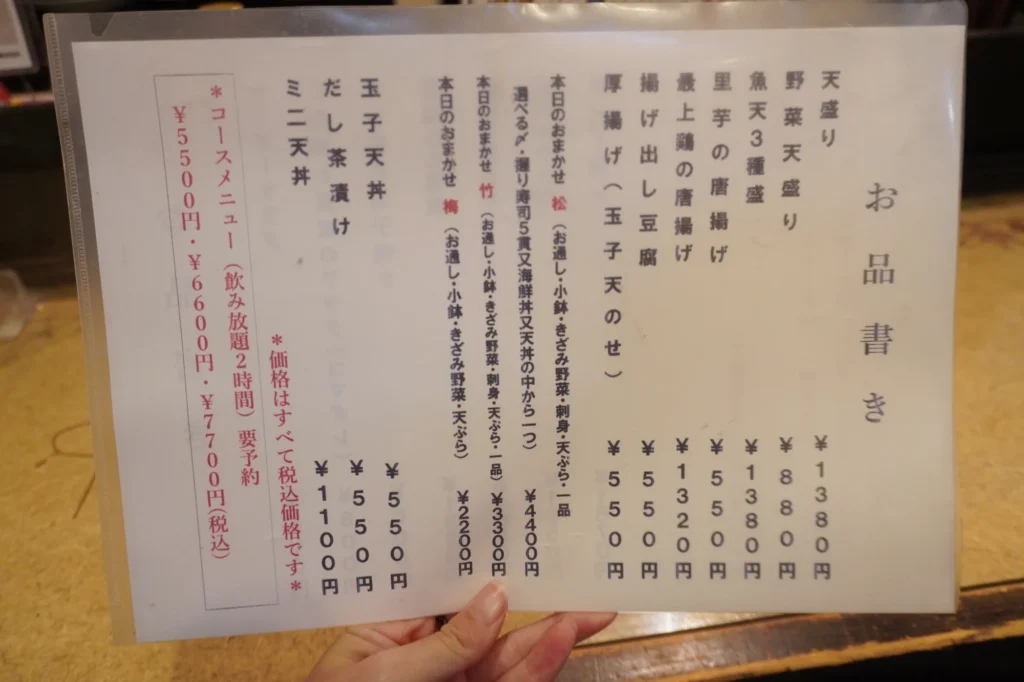 お品書き
天盛り ¥1380円
野菜天盛り ¥880円
魚天3種盛 ¥1380円
里芋の唐揚げ ¥550円
最上鶏の唐揚げ ¥1320円
揚げ出し豆腐 ¥550円
厚揚げ（玉子天のせ） ¥550円
本日のおまかせ 松（お通し・小鉢・きざみ野菜・刺身・天ぷら・一品
選べる〆・握り寿司5貫又海鮮丼又天丼の中から一つ） ¥4400円
本日のおまかせ 竹（お通し・小鉢・きざみ野菜・刺身・天ぷら・一品） ¥3300円
本日のおまかせ 梅（お通し・小鉢・きざみ野菜・天ぷら） ¥2200円
玉子天丼 ¥550円
だし茶漬け ¥550円
ミニ天丼 ¥1100円
＊価格はすべて税込価格です＊
＊コースメニュー（飲み放題2時間）要予約
¥5500円・¥6600円・¥7700円(税込)